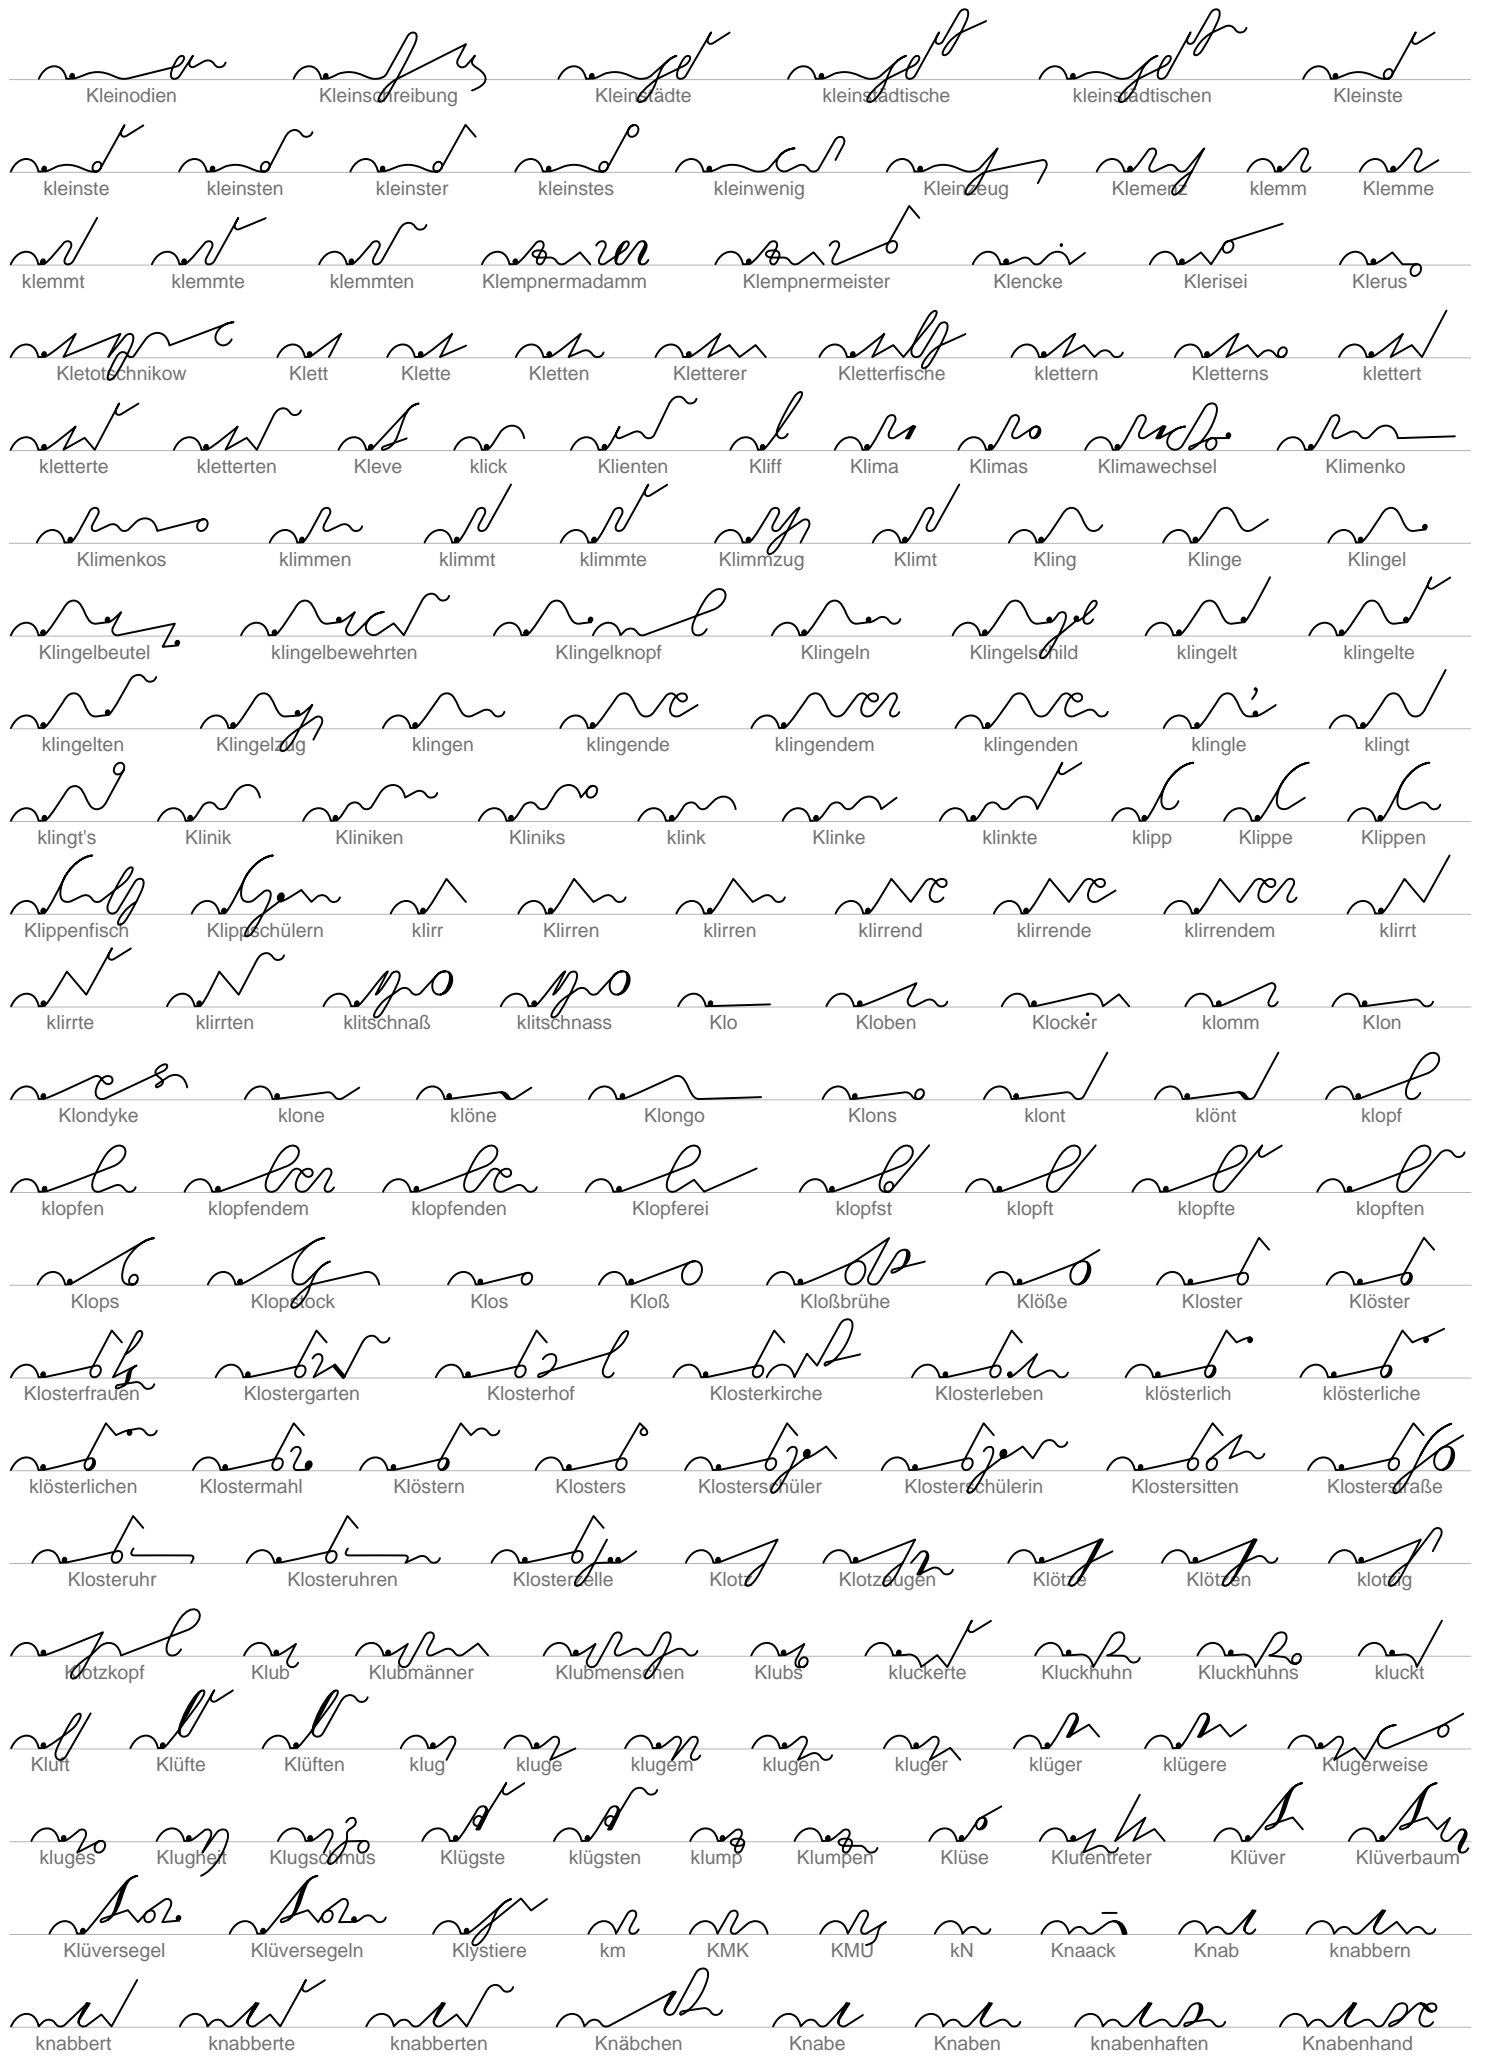 Kleinodien Kleinschreibung Kleinstädte kleinstädtische kleinstädtischen Kleinste
kleinste kleinsten kleinster kleinstes kleinwenig Kleinzeug Klemenz klemm Klemme
klemmt klemmte klemmten Klempnermadamm Klempnermeister Klencke Klerisei Klerus
Kletotschnikow Klett Klette Kletten Kletterer Kletterfische klettern Kletterns klettert
kletterte kletterten Kleve klick Klienten Kliff Klima Klimas Klimawechsel Klimenko
Klimenkos klimmen klimmt klimmte Klimmzug Klimt Kling Klinge Klingel
Klingelbeutel klingelbewehrten Klingelknopf Klingeln Klingelschild klingelt klingelte
klingelten Klingelzug klingen klingende klingendem klingenden klingle klingt
klingt's Klinik Kliniken Kliniks klink Klinke klinkte klipp Klippe Klippen
Klippenfisch Klippschülern klirr Klirren klirren klirrend klirrende klirrendem klirrt
klirrte klirrten klitschnaß klitschnass Klo Kloben Klocker klomm Klon
Klondyke klone klöne Klongo Klons klont klönt klopf
klopfen klopfendem klopfenden Klopferei klopfst klopft klopfte klopften
Klops Klopstock Klos Kloß Kloßbrühe Klöße Kloster Klöster
Klosterfrauen Klostergarten Klosterhof Klosterkirche Klosterleben klösterlich klösterliche
klösterlichen Klostermahl Klöstern Klosters Klosterschüler Klosterschülerin Klostersitten Klosterstraße
Klosteruhr Klosteruhren Klosterzelle Klotz Klotzaugen Klötze Klötzen klotzig
Klotzkopf Klub Klubmänner Klubmenschen Klubs kluckerte Kluckhuhn Kluckhuhns kluckt
Kluft Klüfte Klüften klug kluge klugem klugen kluger klüger klügere Klugerweise
kluges Klugheit Klugschmus Klügste klügsten klump Klumpen Klüse Klutentreter Klüver Klüverbaum
Klüversegel Klüversegeln Klystiere km KMK KMU kN Knaack Knab knabbern
knabbert knabberte knabberten Knäbchen Knabe Knaben knabenhaften Knabenhand